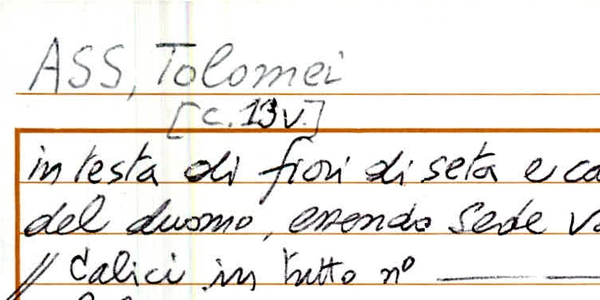 ASS, Tolomei
[c. 13v.]
in testa di fiori di seta e ca
del duomo, essendo Sede va
// Calici in tutto nº